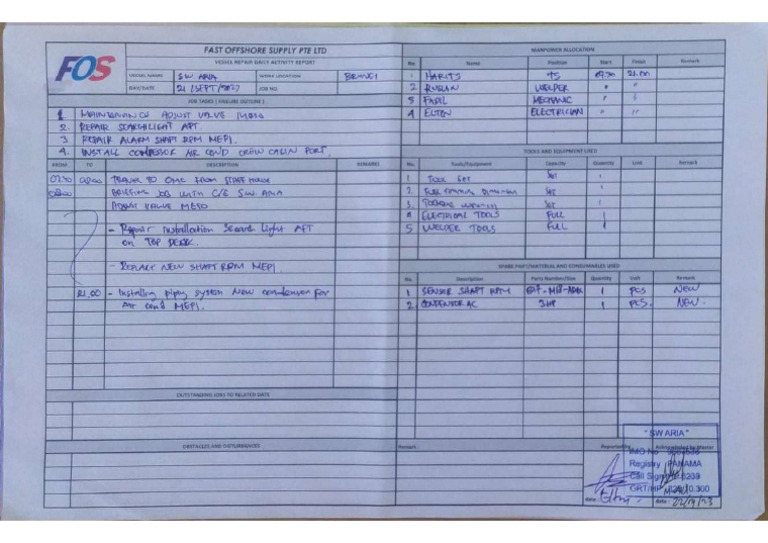 FOS
FAST OFFSHORE SUPPLY PTE LTD
VESSEL REPAIR DAILY ACTIVITY REPORT
VESSEL NAME SW ARIA WORK LOCATION BRUNEI
DAY/DATE 21 /SEPT/2023 JOB NO.
JOB TASKS ( FAILURE OUTLINE )
1. ADJUST VALVE
2. REPAIR SEARCHLIGHT AFT.
3. REPAIR ALARM SHAFT RPM MEPI.
4. INSTALL COMPRESSOR AIR COND CREW CABIN PORT.
FROM TO DESCRIPTION REMARKS
0730 0800 TRAVEL TO FROM STAFF HOUSE
0800 BRIEFING JOB WITH C/E SW. ARIA
ADJUST VALVE
- Repair Installation Search Light AFT
on TOP DECK.
- REPLACE NEW SHAFT RPM MEPI.
21.00 - Installing piping system New condensor for
Air cond MEPI.
OUTSTANDING JOBS TO RELATED DATE
OBSTACLES AND DISTURBANCES
MANPOWER ALLOCATION
No Name Position Start Finish Remark
1 HARITS 21.00
2 RUSLAN WELDER " "
3 FADIL MECHANIC " "
4 ELTON ELECTRICIAN " "
TOOLS AND EQUIPMENT USED
No. Tools/Equipment Capacity Quantity Unit Remark
1 TOOL SET SET 1
2. SET 1
3. SET 1
ELECTRICAL TOOLS FULL 1
5 WELDER TOOLS FULL 1
SPARE PART/MATERIAL AND CONSUMABLES USED
No. Description Parts Number/Size Quantity Unit Remark
1 SENSOR SHAFT RPM 1 PCS NEW
2. CONDENSOR AC 1 PCS. NEW.
Remark : Reported by Acknowledged by Master
"SW ARIA"
IMO No
Registry : PANAMA
Call Sign
GRT/HP
date : date :